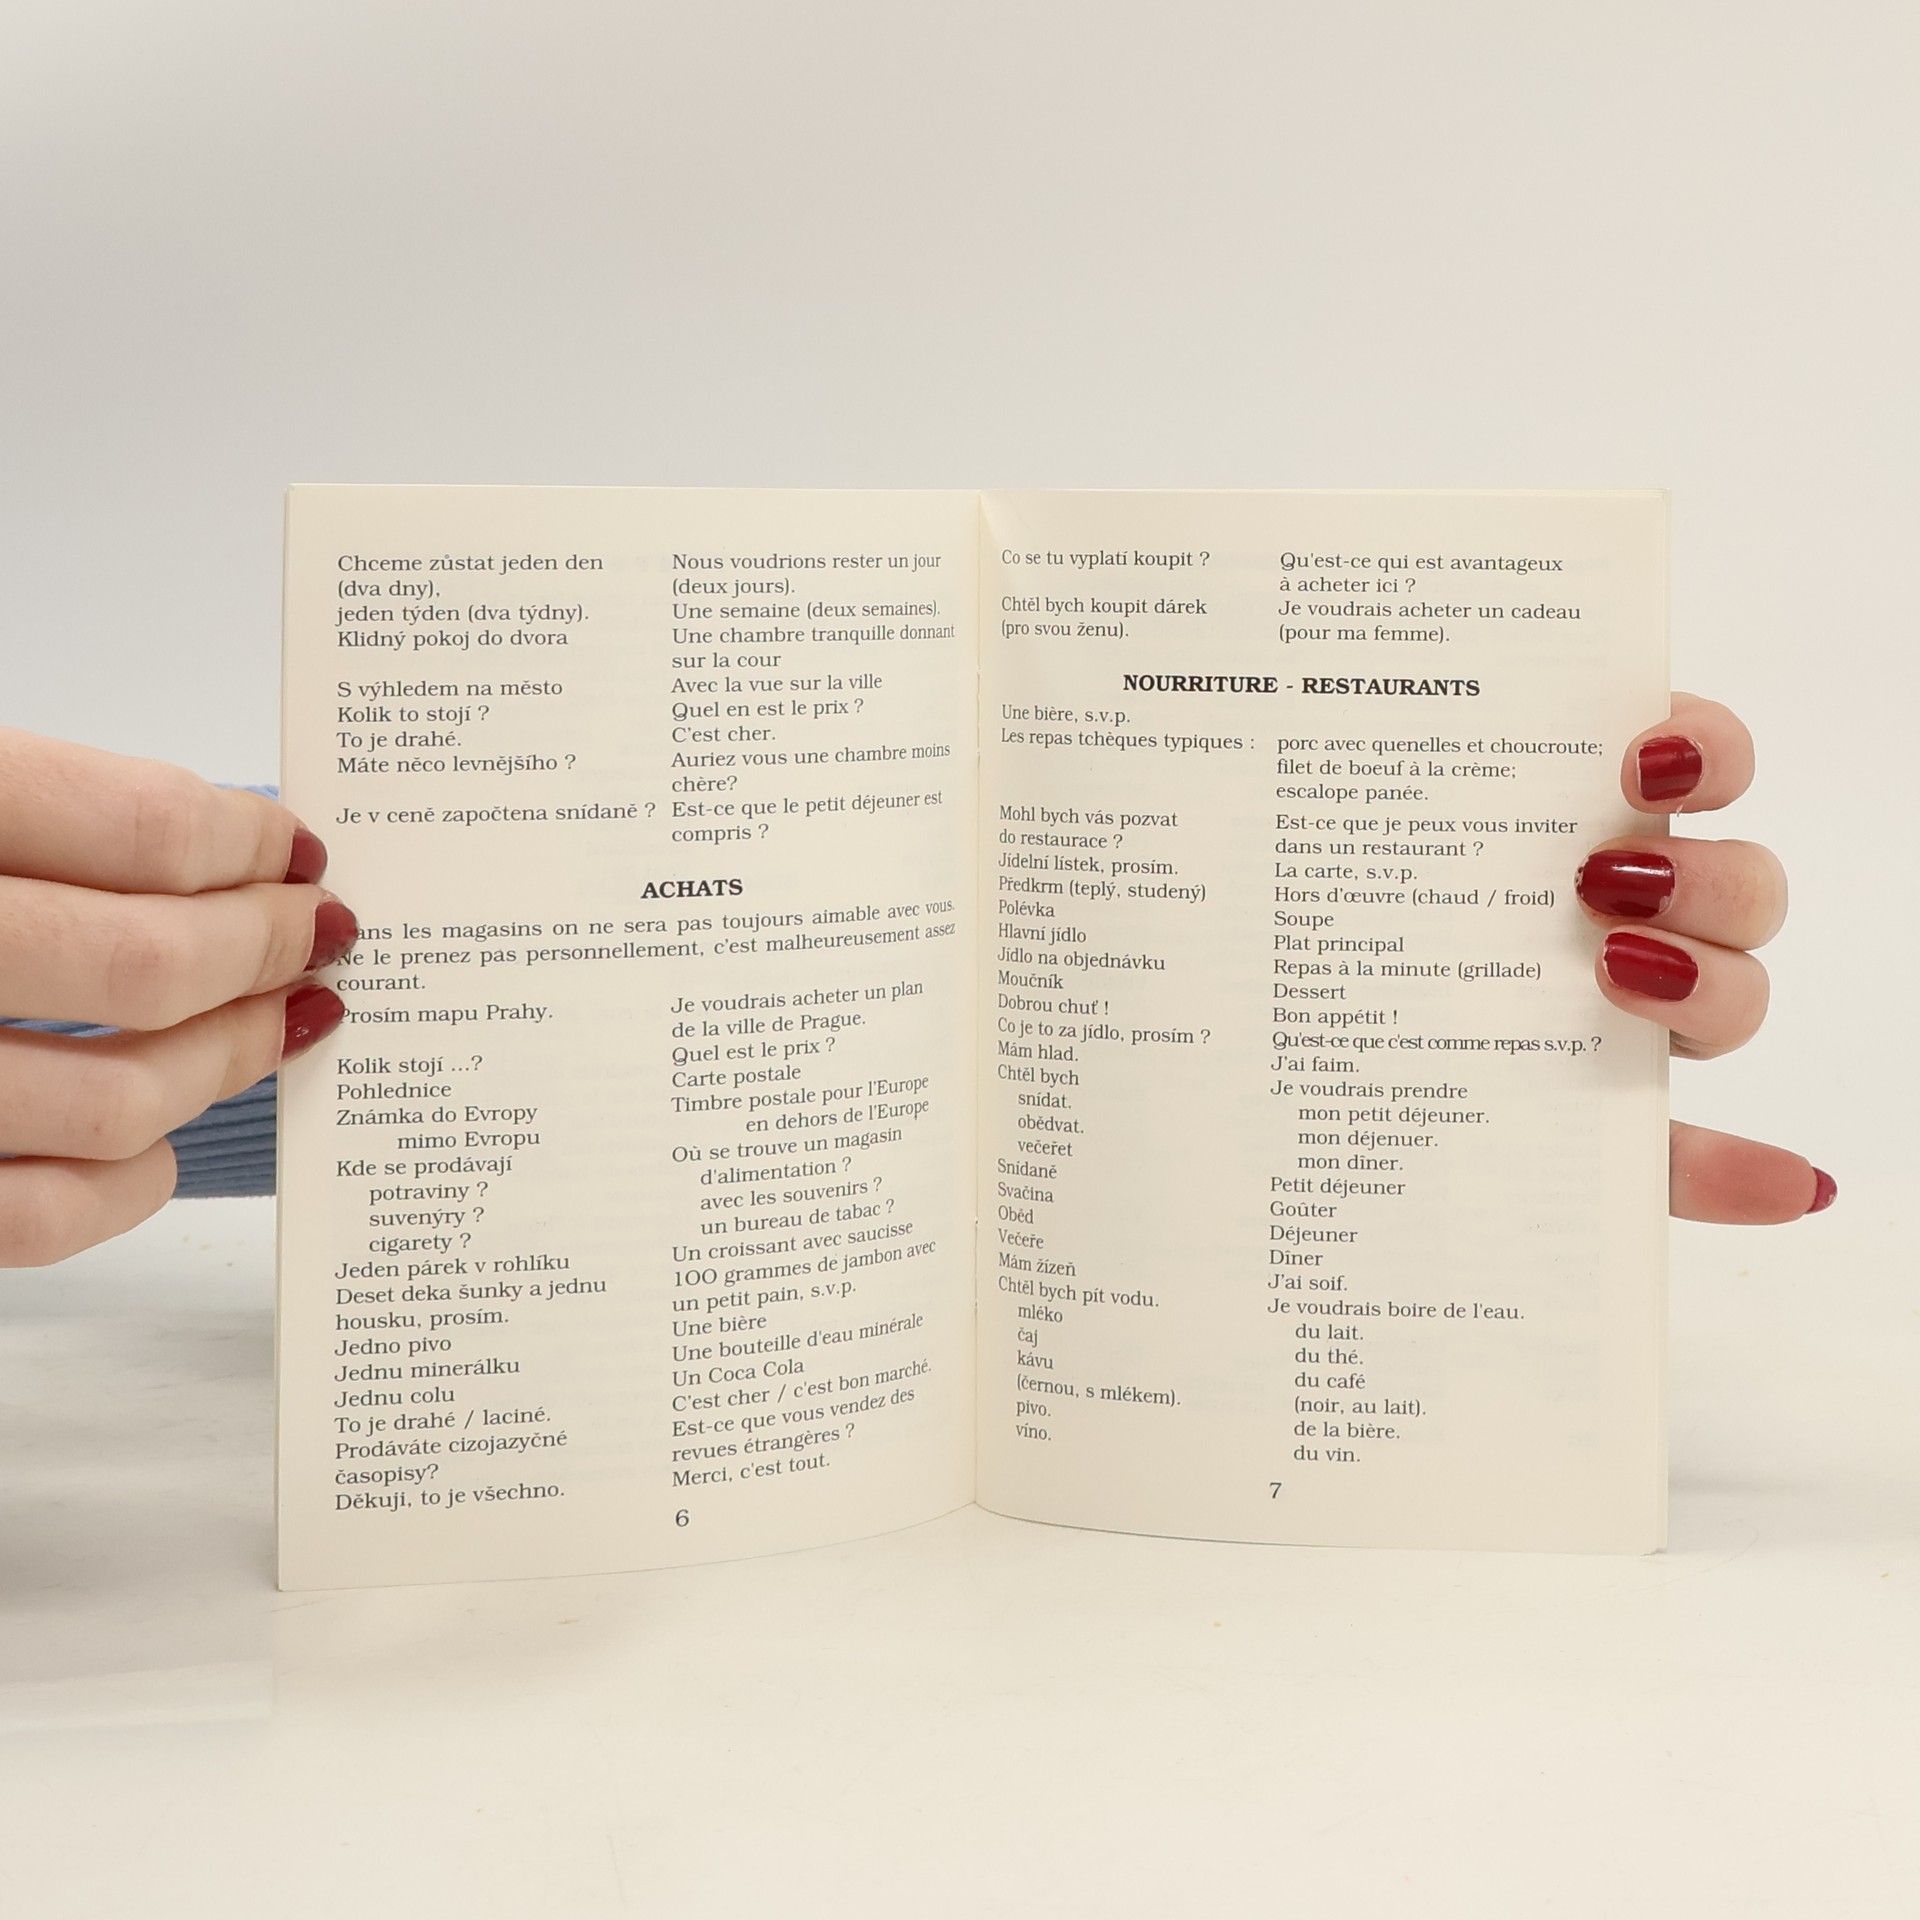 Chceme zůstat jeden den Nous voudrions rester un jour
(dva dny), (deux jours).
jeden týden (dva týdny). Une semaine (deux semaines).
Klidný pokoj do dvora Une chambre tranquille donnant
sur la cour
S výhledem na město Avec la vue sur la ville
Kolik to stojí ? Quel en est le prix ?
To je drahé. C'est cher.
Máte něco levnějšího ? Auriez vous une chambre moins
chère?
Je v ceně započtena snídaně ? Est-ce que le petit déjeuner est
compris ?
ACHATS
ans les magasins on ne sera pas toujours aimable avec vous.
Ne le prenez pas personnellement, c'est malheureusement assez
courant.
Prosím mapu Prahy. Je voudrais acheter un plan
de la ville de Prague.
Kolik stojí ...? Quel est le prix ?
Pohlednice Carte postale
Známka do Evropy Timbre postale pour l'Europe
mimo Evropu en dehors de l'Europe
Kde se prodávají Où se trouve un magasin
potraviny ? d'alimentation ?
suvenýry ? avec les souvenirs ?
cigarety ? un bureau de tabac ?
Jeden párek v rohlíku Un croissant avec saucisse
Deset deka šunky a jednu 100 grammes de jambon avec
housku, prosím. un petit pain, s.v.p.
Jedno pivo Une bière
Jednu minerálku Une bouteille d'eau minérale
Jednu colu Un Coca Cola
To je drahé / laciné. C'est cher / c'est bon marché.
Prodáváte cizojazyčné Est-ce que vous vendez des
časopisy? revues étrangères ?
Děkuji, to je všechno. Merci, c'est tout.
6
Co se tu vyplatí koupit ? Qu'est-ce qui est avantageux
à acheter ici ?
Chtěl bych koupit dárek Je voudrais acheter un cadeau
(pro svou ženu). (pour ma femme).
NOURRITURE - RESTAURANTS
Une bière, s.v.p.
Les repas tchèques typiques : porc avec quenelles et choucroute;
filet de boeuf à la crème;
escalope panée.
Mohl bych vás pozvat Est-ce que je peux vous inviter
do restaurace ? dans un restaurant ?
Jídelní lístek, prosím. La carte, s.v.p.
Předkrm (teplý, studený) Hors d'œuvre (chaud / froid)
Polévka Soupe
Hlavní jídlo Plat principal
Jídlo na objednávku Repas à la minute (grillade)
Moučník Dessert
Dobrou chuť ! Bon appétit !
Co je to za jídlo, prosím ? Qu'est-ce que c'est comme repas s.v.p. ?
Mám hlad. J'ai faim.
Chtěl bych Je voudrais prendre
snídat. mon petit déjeuner.
obědvat. mon déjenuer.
večeřet mon dîner.
Snídaně Petit déjeuner
Svačina Goûter
Oběd Déjeuner
Večeře Dîner
Mám žízeň J'ai soif.
Chtěl bych pít vodu. Je voudrais boire de l'eau.
mléko du lait.
čaj du thé.
kávu du café
(černou, s mlékem). (noir, au lait).
pivo. de la bière.
víno. du vin.
7